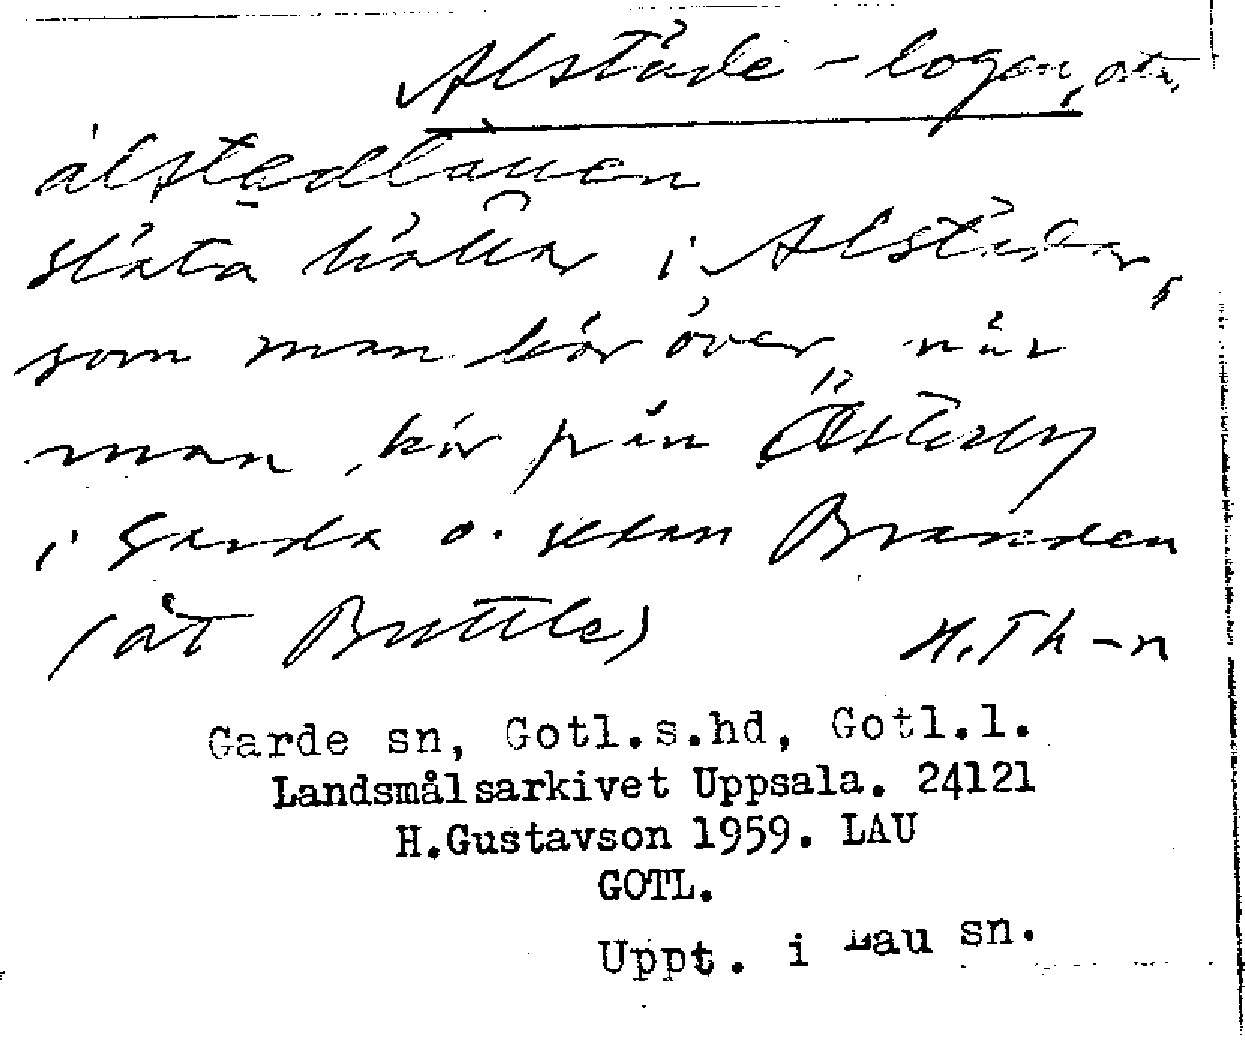 Alstäde-logen,
alstędlåuen
släta hällar i Alstäde,
som man kör över när
man kör från Österby
i Garda o. sedan Branden
(åt Buttle) H.Th-n
Garde sn, Gotl.s.hd, Gotl.l.
Landsmålsarkivet Uppsala. 24121
H.Gustavson 1959. LAU
GOTL.
Uppt. i Lau sn.